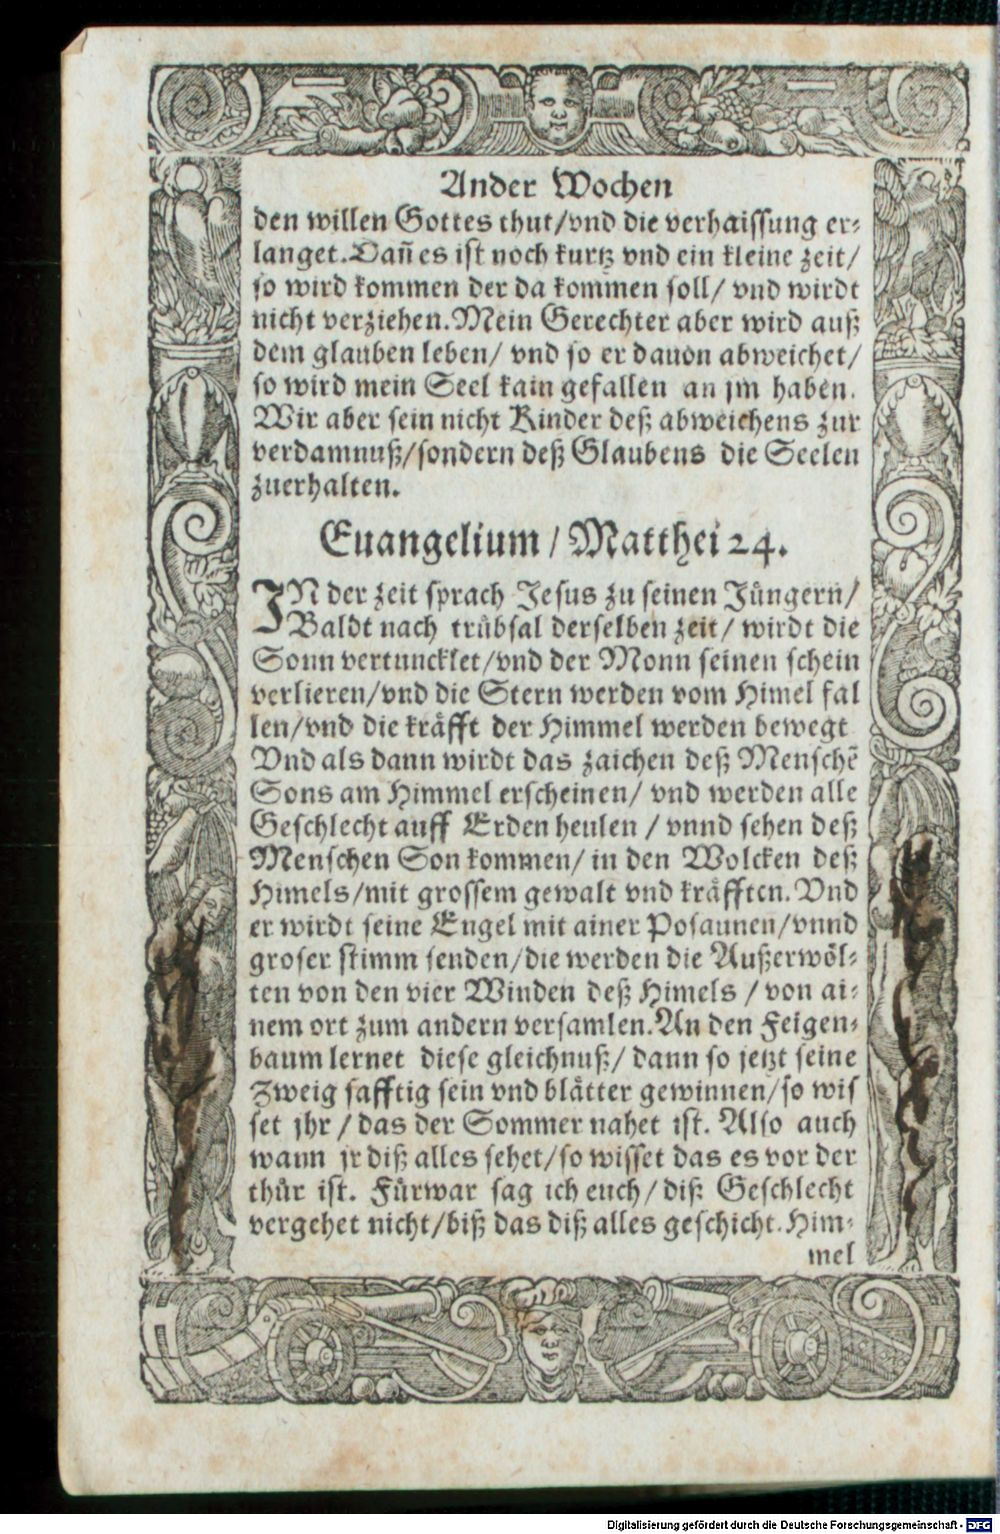 Ander Wochen
den willen Gottes thut/vnd die verhaissung er⸗
langet. Dañ es ist noch kurtz vnd ein kleine zeit/
so wird kommen der da kommen soll/ vnd wirdt
nicht verziehen. Mein Gerechter aber wird auß
dem glauben leben/ vnd so er dauon abweichet/
so wird mein Seel kain gefallen an jm haben.
Wir aber sein nicht Kinder deß abweichens zur
verdamnuß/sondern deß Glaubens die Seelen
zuerhalten.
Euangelium / Matthei 24.
IN der zeit sprach Jesus zu seinen Jüngern/
Baldt nach trübsal derselben zeit/ wirdt die
Sonn vertuncklet/vnd der Monn seinen schein
verlieren/vnd die Stern werden vom Himel fal
len/vnd die kräfft der Himmel werden bewegt
Vnd als dann wirdt das zaichen deß Menschẽ
Sons am Himmel erscheinen/ vnd werden alle
Geschlecht auff Erden heulen / vnnd sehen deß
Menschen Son kommen/ in den Wolcken deß
Himels/mit grossem gewalt vnd kräfften. Vnd
er wirdt seine Engel mit ainer Posaunen/vnnd
groser stimm senden/die werden die Außerwöl⸗
ten von den vier Winden deß Himels / von ai⸗
nem ort zum andern versamlen. An den Feigen⸗
baum lernet diese gleichnuß/ dann so jetzt seine
Zweig safftig sein vnd blätter gewinnen/so wis
set jhr / das der Sommer nahet ist. Also auch
wann jr diß alles sehet/so wisset das es vor der
thür ist. Fürwar sag ich euch/ diß Geschlecht
vergehet nicht/biß das diß alles geschicht. Him⸗
mel
Digitalisierung gefördert durch die Deutsche Forschungsgemeinschaft - DFG